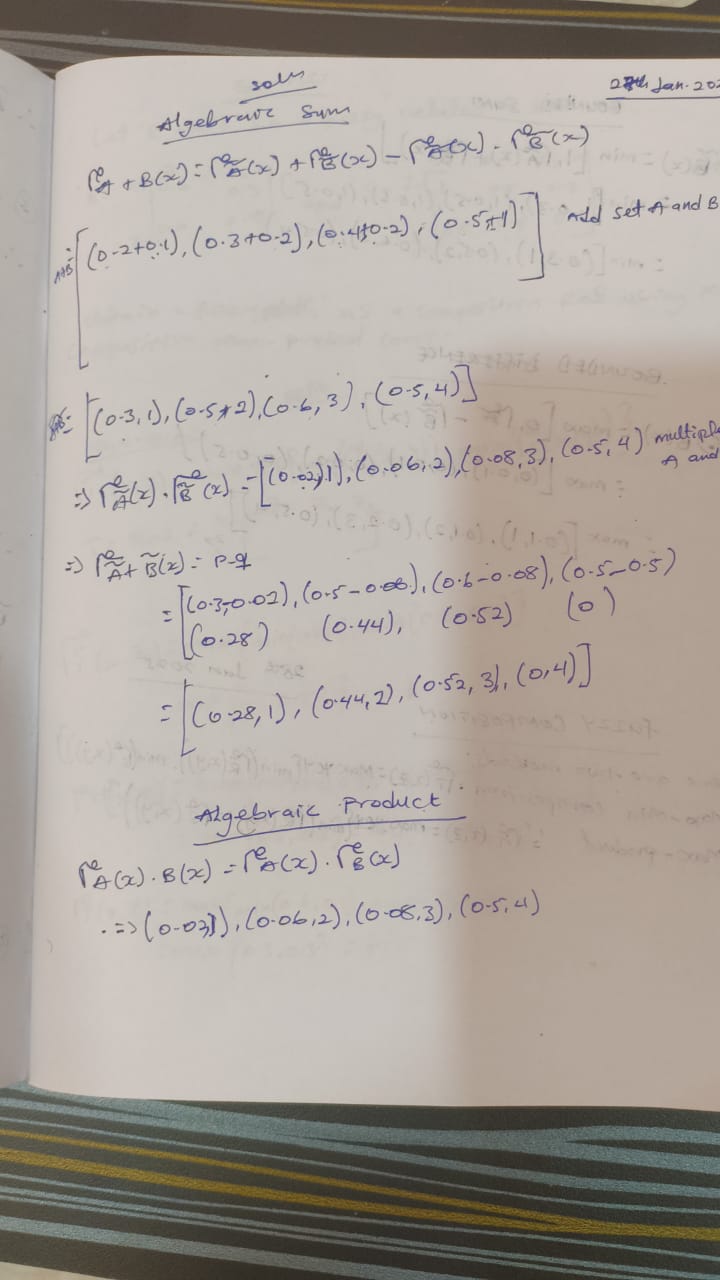 soln
27th Jan. 202
Algebraic Sum
μA + B(x) = μÃ(x) + μB̃(x) - μÃ(x) . μB̃(x)
A+B = [(0.2+0.1), (0.3+0.2), (0.4+0.2), (0.5+1)] Add set A and B
= [(0.3,1), (0.5,2), (0.6,3), (0.5,4)]
=> μÃ(x) . μB̃(x) = [(0.02,1), (0.06,2), (0.08,3), (0.5,4) multiple A and
=> μÃ + B̃(x) = P-q
= [(0.3-0.02), (0.5-0.06), (0.6-0.08), (0.5-0.5)
(0.28) (0.44), (0.52) (0)
= [(0.28,1), (0.44,2), (0.52,3), (0,4)]
Algebraic Product
μA(x) . B(x) = μA(x) . μB(x)
=> (0.02,1), (0.06,2), (0.08,3), (0.5,4)